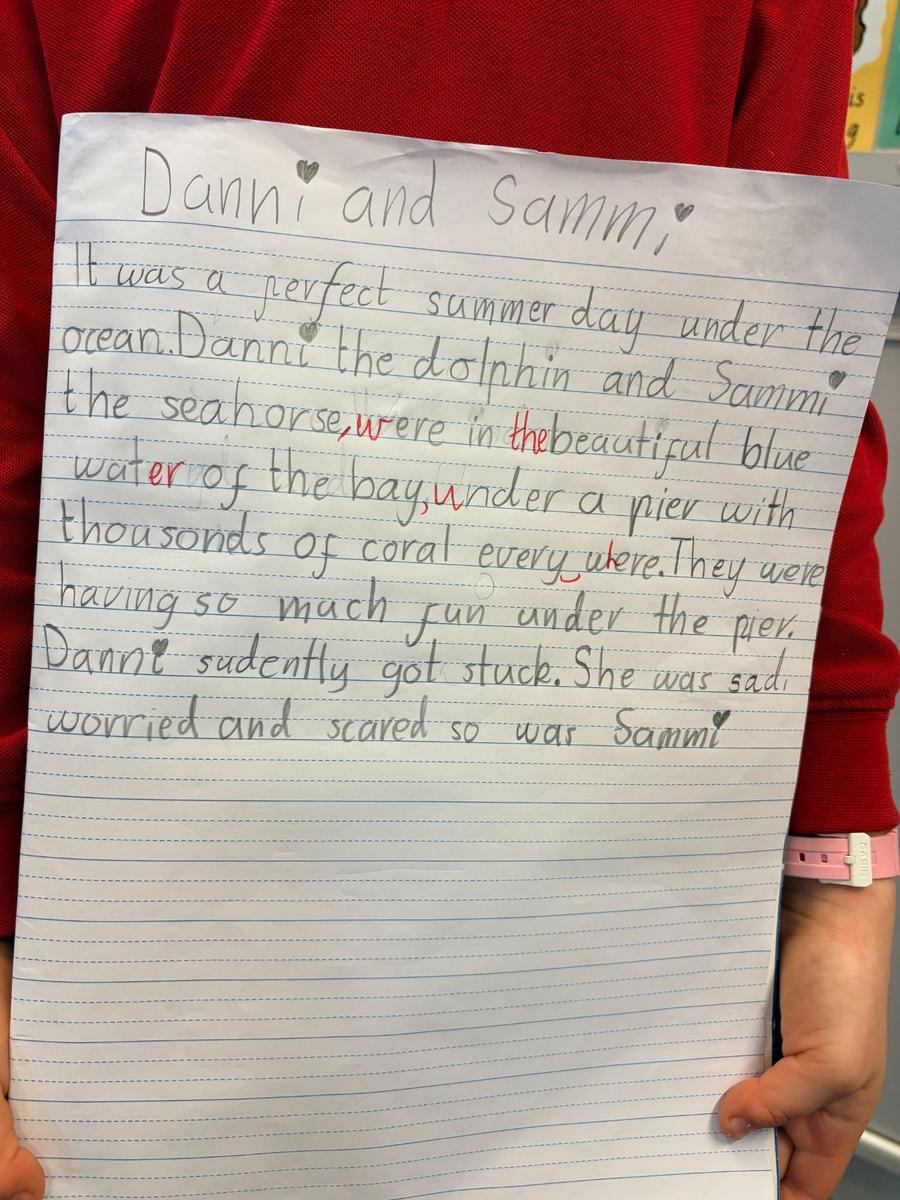 Danni and Sammi
It was a perfect summer day under the
ocean. Danni the dolphin and Sammi
the seahorse, were in the beautiful blue
water of the bay, under a pier with
thousonds of coral every where. They were
having so much fun under the pier.
Danni sudently got stuck. She was sad,
worried and scared so was Sammi
is
g
CASIO